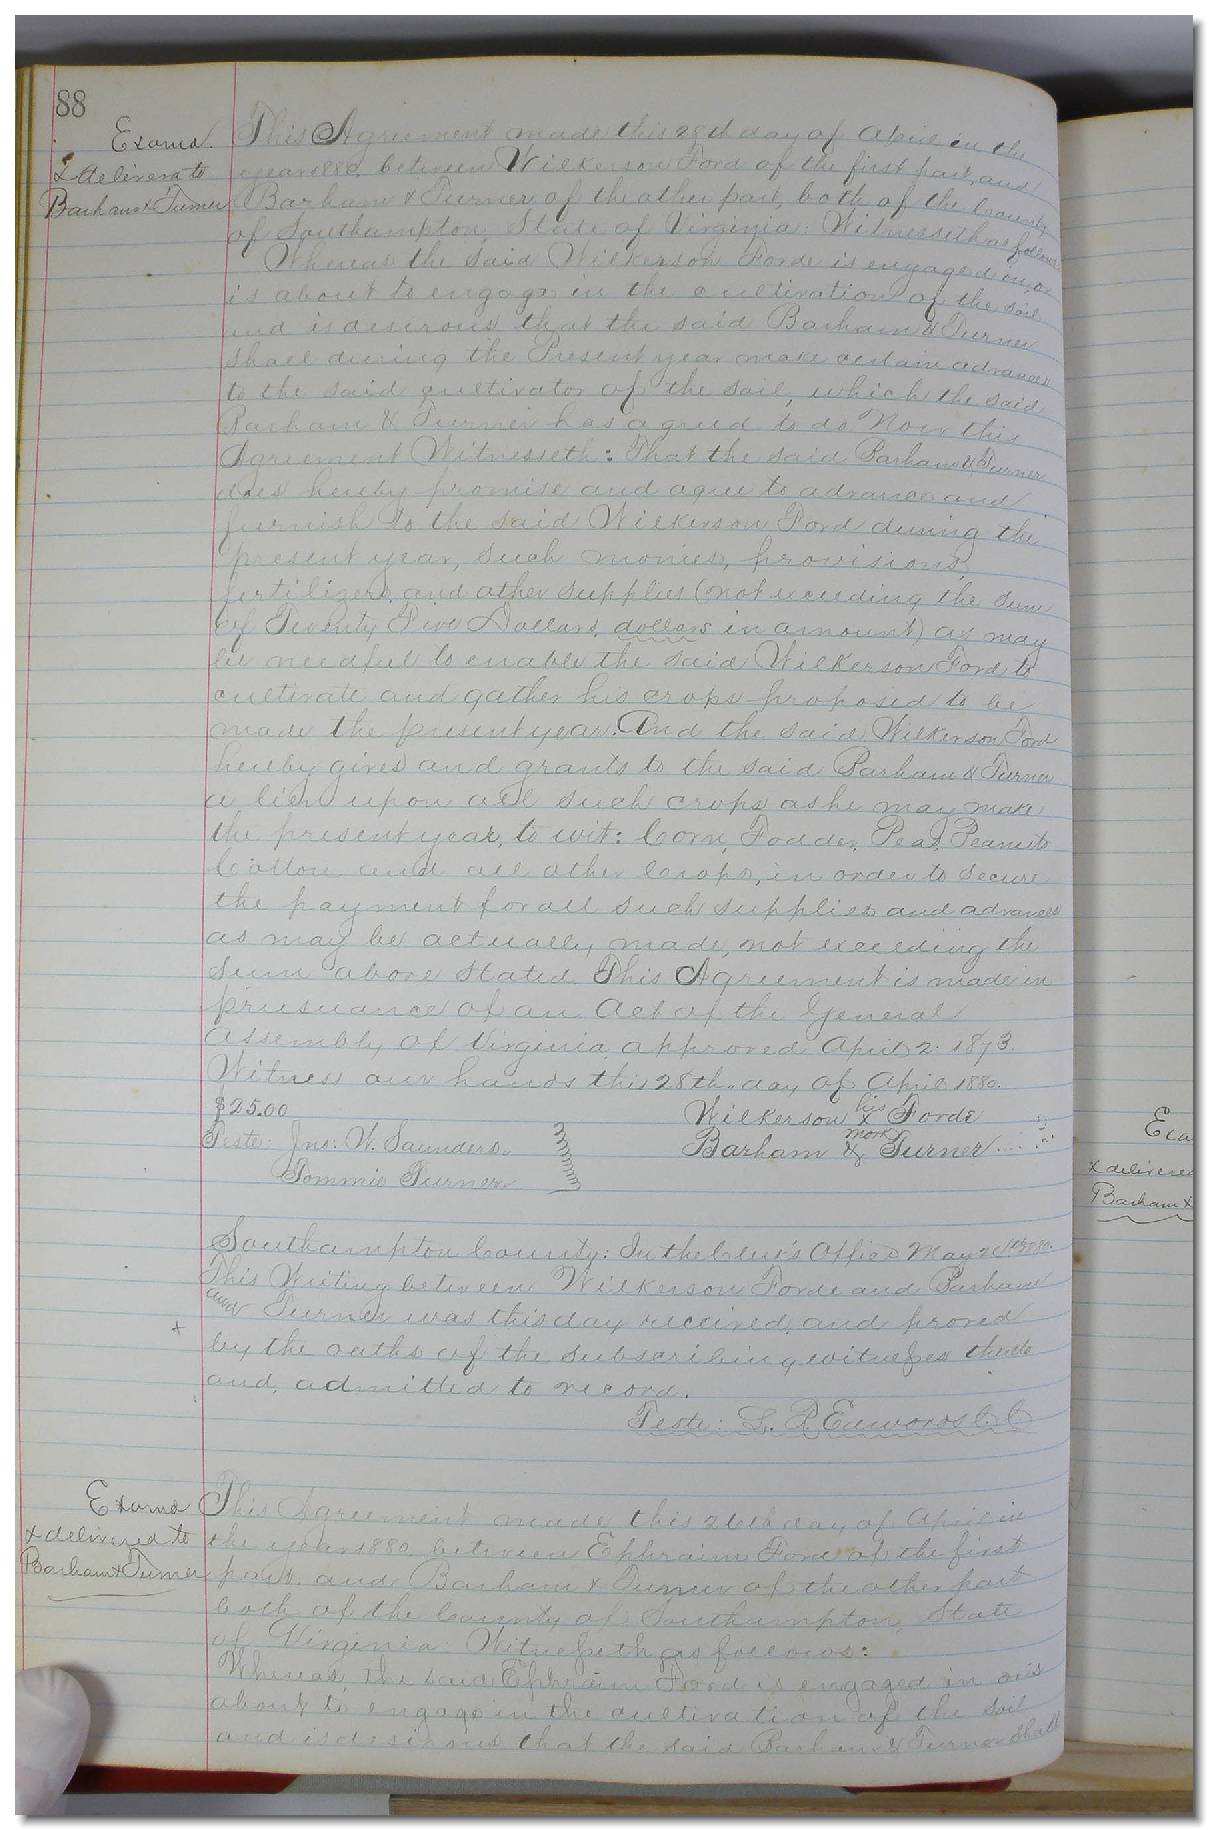 88
Examd.
& deliverd to
Barham & Turner
This Agreement made this 28th day of April in the
year 1880. between Wilkerson Ford of the first part, and
Barham & Turner of the other part, both of the County
of Southampton, State of Virginia: Witnesseth as follows
Whereas the said Wilkerson Forde is engaged in, or
is about to engage in the cultivation of the soil
and is desirous that the said Barham & Turner
shall during the Present year make certain advances
to the said cultivator of the soil, which the said
Barham & Turner has agreed to do Now this
Agreement Witnesseth: That the said Barham & Turner
does hereby promise and agree to advance and
furnish to the said Wilkerson Ford during the
present year, such monies, provisions,
fertilizers, and other supplies (not exceeding the sum
of Twenty Five Dollars, dollars in amount) as may
be needful to enable the said Wilkerson Ford to
cultivate and gather his crops proposed to be
made the present year. And the said Wilkerson Ford
hereby gives and grants to the said Barham & Turner
a lien upon all such crops as he may make
the present year, to wit: Corn, Fodder, Peas, Peanuts
Cotton and all other Crops, in order to secure
the payment for all such supplies and advances
as may be actually made, not exceeding the
sum above stated. This Agreement is made in
pursuance of an Act of the General
Assembly of Virginia approved April 2. 1873.
Witness our hands this 28th day of April 1880.
$25.00
Wilkerson his x mark Forde
Teste: Jno: W. Saunders.
Barham & Turner
Tommie Turner
Southampton County: In the Clerk's Office May 1880.
This Writing between Wilkerson Forde and Barham
and Turner was this day received, and proved
by the oaths of the subscribing witnesses thereto
and, admitted to record.
Teste: L. R. Edwards C. C
Examd
& delivered to
Barham & Turner
This Agreement made this 26th day of April in
the year 1880. between Ephraim Ford of the first
part. and Barham & Turner of the other part
both of the County of Southampton, State
of Virginia Witnesseth as follows:
Whereas, the said Ephraim Ford is engaged in or is
about to engage in the cultivation of the soil
and is desirous that the said Barham & Turner shall
Exa
& delivered
Barham &